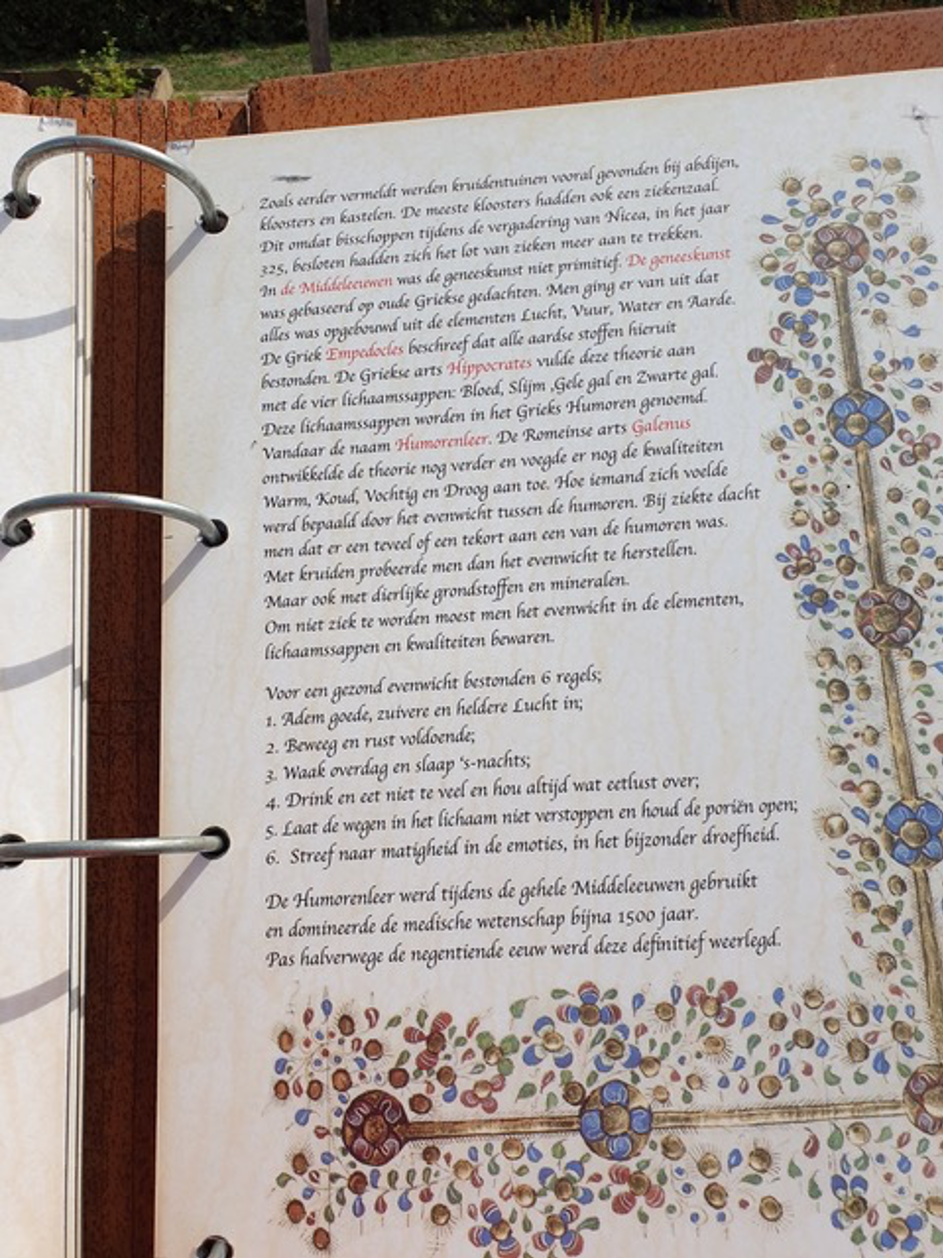 Zoals eerder vermeldt werden kruidentuinen vooral gevonden bij abdijen,
kloosters en kastelen. De meeste kloosters hadden ook een ziekenzaal.
Dit omdat bisschoppen tijdens de vergadering van Nicea, in het jaar
325, besloten hadden zich het lot van zieken meer aan te trekken.
In de Middeleeuwen was de geneeskunst niet primitief. De geneeskunst
was gebaseerd op oude Griekse gedachten. Men ging er van uit dat
alles was opgebouwd uit de elementen Lucht, Vuur, Water en Aarde.
De Griek Empedocles beschreef dat alle aardse stoffen hieruit
bestonden. De Griekse arts Hippocrates vulde deze theorie aan
met de vier lichaamssappen: Bloed, Slijm ,Gele gal en Zwarte gal.
Deze lichaamssappen worden in het Grieks Humoren genoemd.
Vandaar de naam Humorenleer. De Romeinse arts Galenus
ontwikkelde de theorie nog verder en voegde er nog de kwaliteiten
Warm, Koud, Vochtig en Droog aan toe. Hoe iemand zich voelde
werd bepaald door het evenwicht tussen de humoren. Bij ziekte dacht
men dat er een teveel of een tekort aan een van de humoren was.
Met kruiden probeerde men dan het evenwicht te herstellen.
Maar ook met dierlijke grondstoffen en mineralen.
Om niet ziek te worden moest men het evenwicht in de elementen,
lichaamssappen en kwaliteiten bewaren.
Voor een gezond evenwicht bestonden 6 regels;
1. Adem goede, zuivere en heldere Lucht in;
2. Beweeg en rust voldoende;
3. Waak overdag en slaap 's-nachts;
4. Drink en eet niet te veel en hou altijd wat eetlust over;
5. Laat de wegen in het lichaam niet verstoppen en houd de poriën open;
6. Streef naar matigheid in de emoties, in het bijzonder droefheid.
De Humorenleer werd tijdens de gehele Middeleeuwen gebruikt
en domineerde de medische wetenschap bijna 1500 jaar.
Pas halverwege de negentiende eeuw werd deze definitief weerlegd.